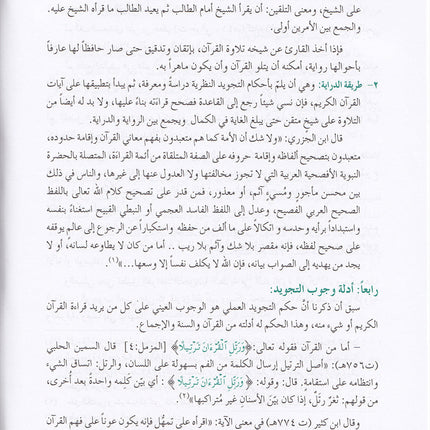 على الشيخ، ومعنى التلقين: أن يقرأ الشيخ أمام الطالب ثم يعيد الطالب ما قرأه الشيخ عليه.
والجمع بين الأمرين أولى.
فإذا أخذ القارئ عن شيخه تلاوة القرآن، بإتقان وتدقيق حتى صار حافظاً لها عارفاً
بأحوالها رواية، أمكنه أن يتلو القرآن وأن يكون ماهراً به.
٢- طريقة الدراية: وهي أن يلمّ بأحكام التجويد النظرية دراسةً ومعرفة، ثم يبدأ بتطبيقها على آيات
القرآن الكريم، فإن نسي شيئاً رجع إلى القاعدة فصحح قراءته بناءً عليها، ولا بد له أيضاً من
التلاوة على شيخ متقن حتى يبلغ الغاية في الكمال ويجمع بين الرواية والدراية.
قال ابن الجزري: «ولا شك أن الأمة كما هم متعبدون بفهم معاني القرآن وإقامة حدوده،
متعبدون بتصحيح ألفاظه وإقامة حروفه على الصفة المتلقاة من أئمة القراءة، المتصلة بالحضرة
النبوية الأفصحية العربية التي لا تجوز مخالفتها ولا العدول عنها إلى غيرها، والناس في ذلك
بين محسن مأجور ومُسيءٍ آثم، أو معذور، فمن قدر على تصحيح كلام الله تعالى باللفظ
الصحيح العربي الفصيح، وعدل إلى اللفظ الفاسد العجمي أو النبطي القبيح استغناءً بنفسه
واستبداداً برأيه وحدسه و اتكالاً على ما ألف من حفظه واستكباراً عن الرجوع إلى عالم يوقفه
على صحيح لفظه، فإنه مقصر بلا شك وآثم بلا ريب .. أما من كان لا يطاوعه لسانه، أو لا
يجد من يهديه إلى الصواب بيانه، فإن الله لا يكلف نفساً إلا وسعها...»(١).
رابعاً: أدلة وجوب التجويد:
سبق أن ذكرنا أنّ حكم التجويد العملي هو الوجوب العيني على كل من يريد قراءة القرآن
الكريم أو شيء منه، وهذا الحكم له أدلته من القرآن والسنة والإجماع.
– أما من القرآن فقوله تعالى: ﴿وَرَتِّلِ الْقُرْءَانَ تَرْتِيلًا﴾ [المزمل:٤] قال السمين الحلبي
(ت٧٥٦هـ): «أصل الترتيل إرسال الكلمة من الفم بسهولة على اللسان، والرتل: اتساق الشيء
وانتظامه على استقامةٍ. قال: وقوله: ﴿وَرَتِّلِ الْقُرْءَانَ تَرْتِيلًا﴾ : أي بيّن كَلِمه واحدةً بعد أُخرى،
من قولهم: ثغرٌ رتلٌ، إذا كان بيّن الأسنان غير مُتراكبها»(٢).
وقال ابن كثير (ت ٧٧٤هـ) في معنى الآية: «اقرأه على تمهُّل فإنه يكون عوناً على فهم القرآن